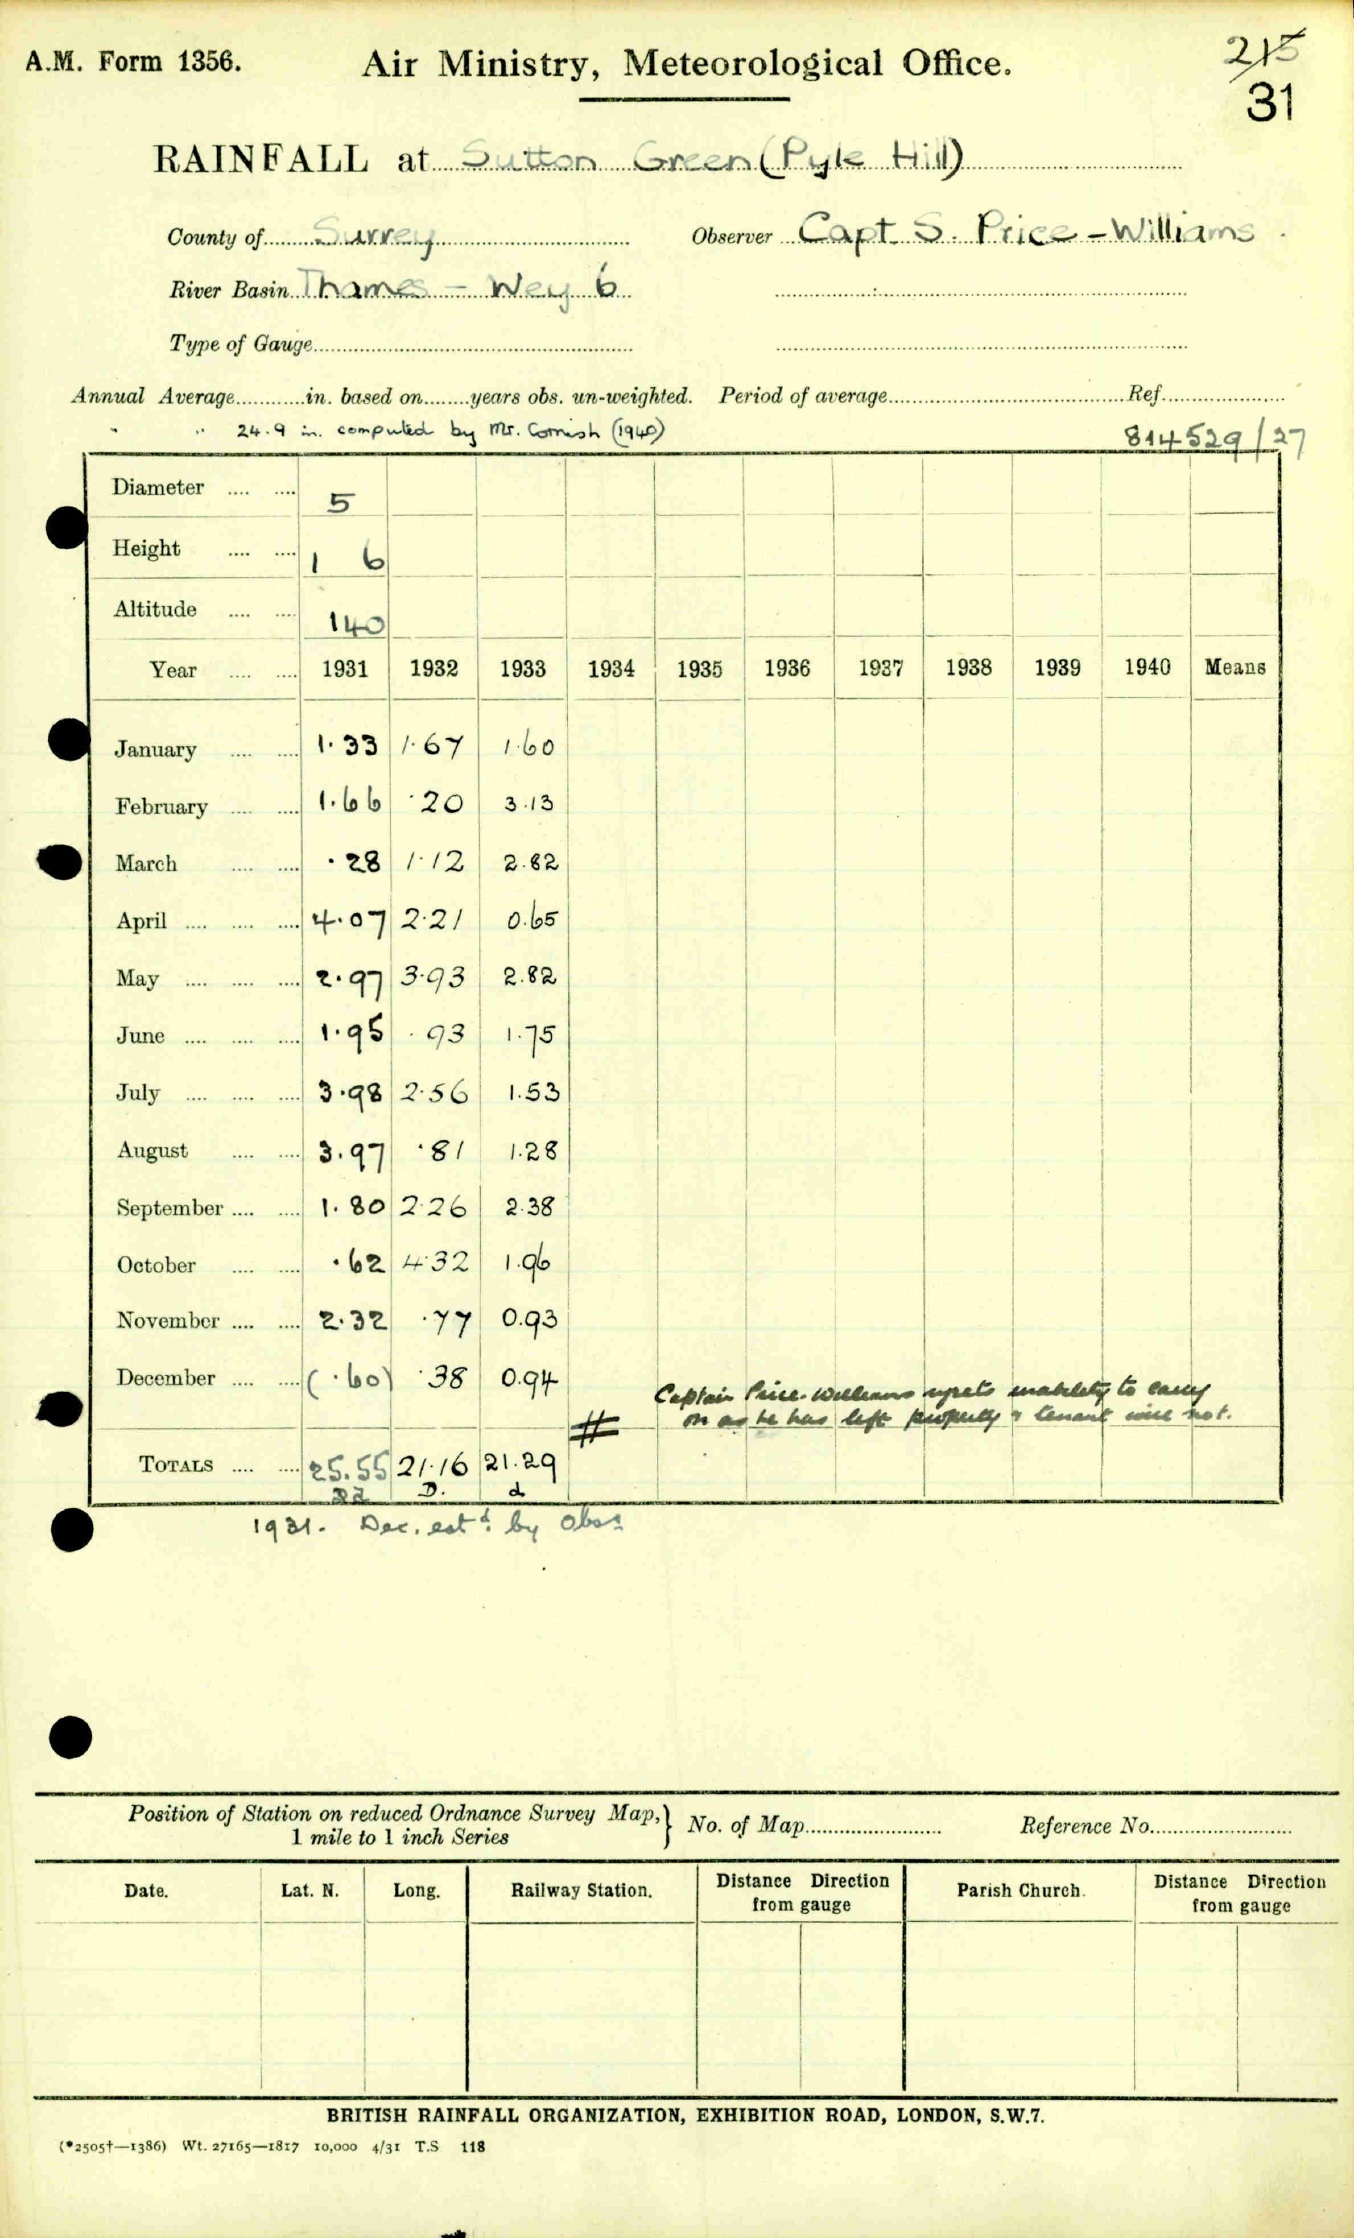 A.M. Form 1356.
Air Ministry, Meteorological Office.
215
31
RAINFALL at Sutton Green (Pyle Hill)
County of Surrey
Observer Capt S. Price-Williams
River Basin Thames - Wey 6
Type of Gauge
Annual Average in. based on years obs. un-weighted. Period of average Ref.
" " 24.9 in. computed by Mr. Cornish (1940)
814529/27
Diameter 5
Height 1 6
Altitude 140
Year 1931 1932 1933 1934 1935 1936 1937 1938 1939 1940 Means
January 1.33 1.67 1.60
February 1.66 .20 3.13
March .28 1.12 2.82
April 4.07 2.21 0.65
May 2.97 3.93 2.82
June 1.95 .93 1.75
July 3.98 2.56 1.53
August 3.97 .81 1.28
September 1.80 2.26 2.38
October .62 4.32 1.96
November 2.32 .77 0.93
December (.60) .38 0.94
Captain Price-Williams regrets inability to carry
on as he has left property & tenant will not.
#
TOTALS 25.55 21.16 21.29
D. d
1931. Dec. estd. by Obsr
Position of Station on reduced Ordnance Survey Map,
1 mile to 1 inch Series
No. of Map
Reference No.
Date. Lat. N. Long. Railway Station. Distance Direction from gauge Parish Church. Distance Direction from gauge
BRITISH RAINFALL ORGANIZATION, EXHIBITION ROAD, LONDON, S.W.7.
(*2505†—1386) Wt. 27165—1817 10,000 4/31 T.S 118